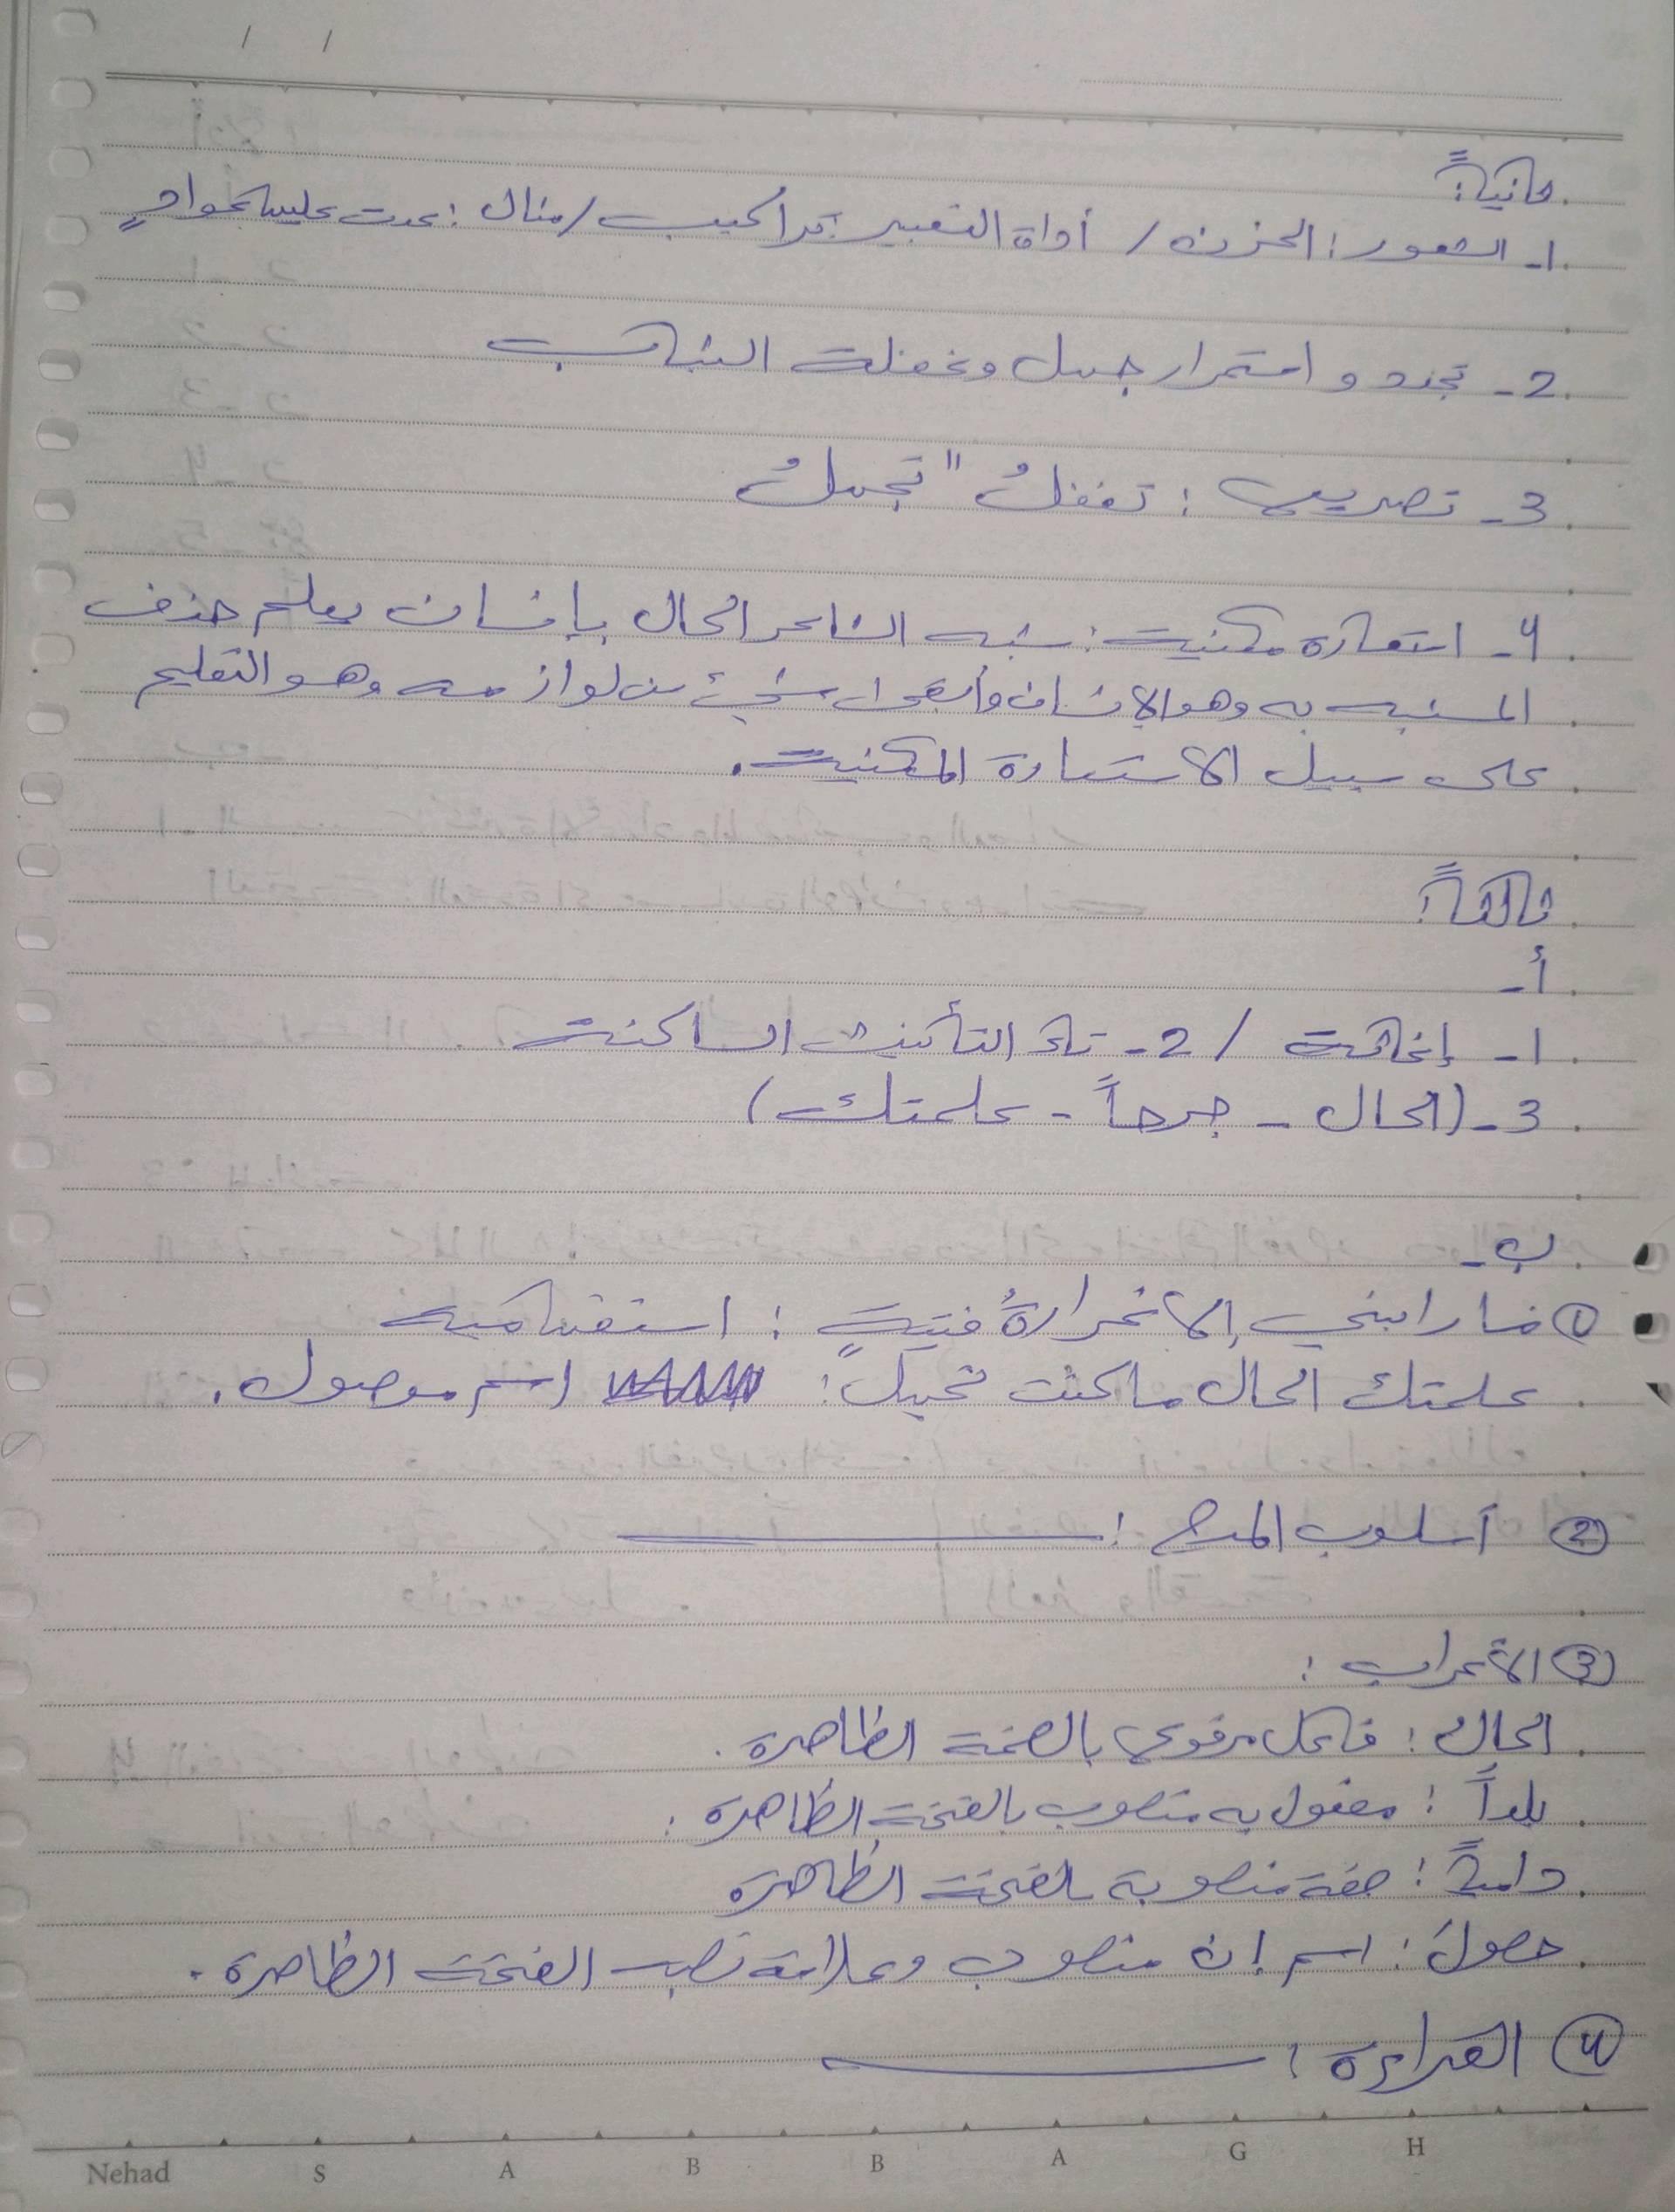 / /
ثانياً:
1- الشعور: الحزن / أداة التعبير: تراكيب / مثال: عدت علينا عوادٍ
2- تجدد و استمرار جهل وغفلة الشباب
3- تصريع: تغفلُ " تجهلُ
4- استعارة مكنية: شبه الشاعر الحال بإنسان يعلم حذف
المشبه به وهو الإنسان وأبقى شيء من لوازمه وهو التعليم
على سبيل الاستعارة المكنية.
ثالثاً:
أ-
1- إضافة / 2- تاء التأنيث الساكنة
3- (الحال - جرحاً - علمتك)
ب-
① فما رابني إلا غرارةُ فتيةٍ: استفهامية
علمتك الحال ما كنت تجهل: اسم موصول.
② أسلوب المدح:
③ الأعراب:
الحال: فاعل مرفوع بالضمة الظاهرة.
بلداً: مفعول به منصوب بالفتحة الظاهرة.
دامياً: صفة منصوبة بالفتحة الظاهرة
حصولَ: اسم إن منصوب وعلامة نصبه الفتحة الظاهرة.
④ القراءة:
Nehad S A B B A G H